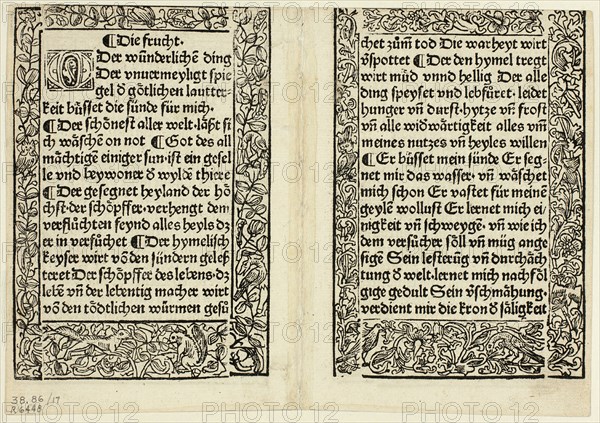 ¶ Die frucht.
O
Der wůnderlichē ding
Der vnuermeyligt spie
gel đ gȯtlichen lautter-
keit bůsset die sünde für mich.
¶ Der schȯnest aller welt. låßt si
ch wåschē on not ¶ Got des all
måchtigē einiger sun. ist ein gesel
le vnd beywoner đ wyldē thiere
¶ Der gesegnet heyland der hȯ
chst. der schȯpffer. verhengt den
verflůchten feynd alles heyls dz
er in verfůchet ¶ Der hymelisch
keyser wirt vō den sündern geleſ
teret Der schȯpffer des lebens. dz
lebē vn̄ der lebentig macher wirt
vō den tȯdtlichen würmen gefů
chet zům̄ tod Die warheyt wirt
v̉spottet ¶ Der den hymel tregt
wirt můd vnnd hellig Der alle
ding speyset vnd lebfüret. leidet
hunger vn̄ durst. hytze vn̄ frost
vn̄ alle widẘårtigkeit alles vm̄
meines nutzes vn̄ heyles willen
¶ Er bůsset mein sünde Er seg-
net mir das wasser. vn̄ wåschet
mich schon Er vastet für meinē
geylē wollust Er lernet mich ei-
nigkeit vn̄ schweygē. vn̄ wie ich
dem versůcher sȯll vn̄ můg ange
sige Sein lesterūg vn̄ durchåch
tung đ welt. lernet mich nachfȯl
gige gedult Sein v̉schmåhung.
verdient mir die kron đ såligkeit
38.86/17
R6448
PHOTO 12